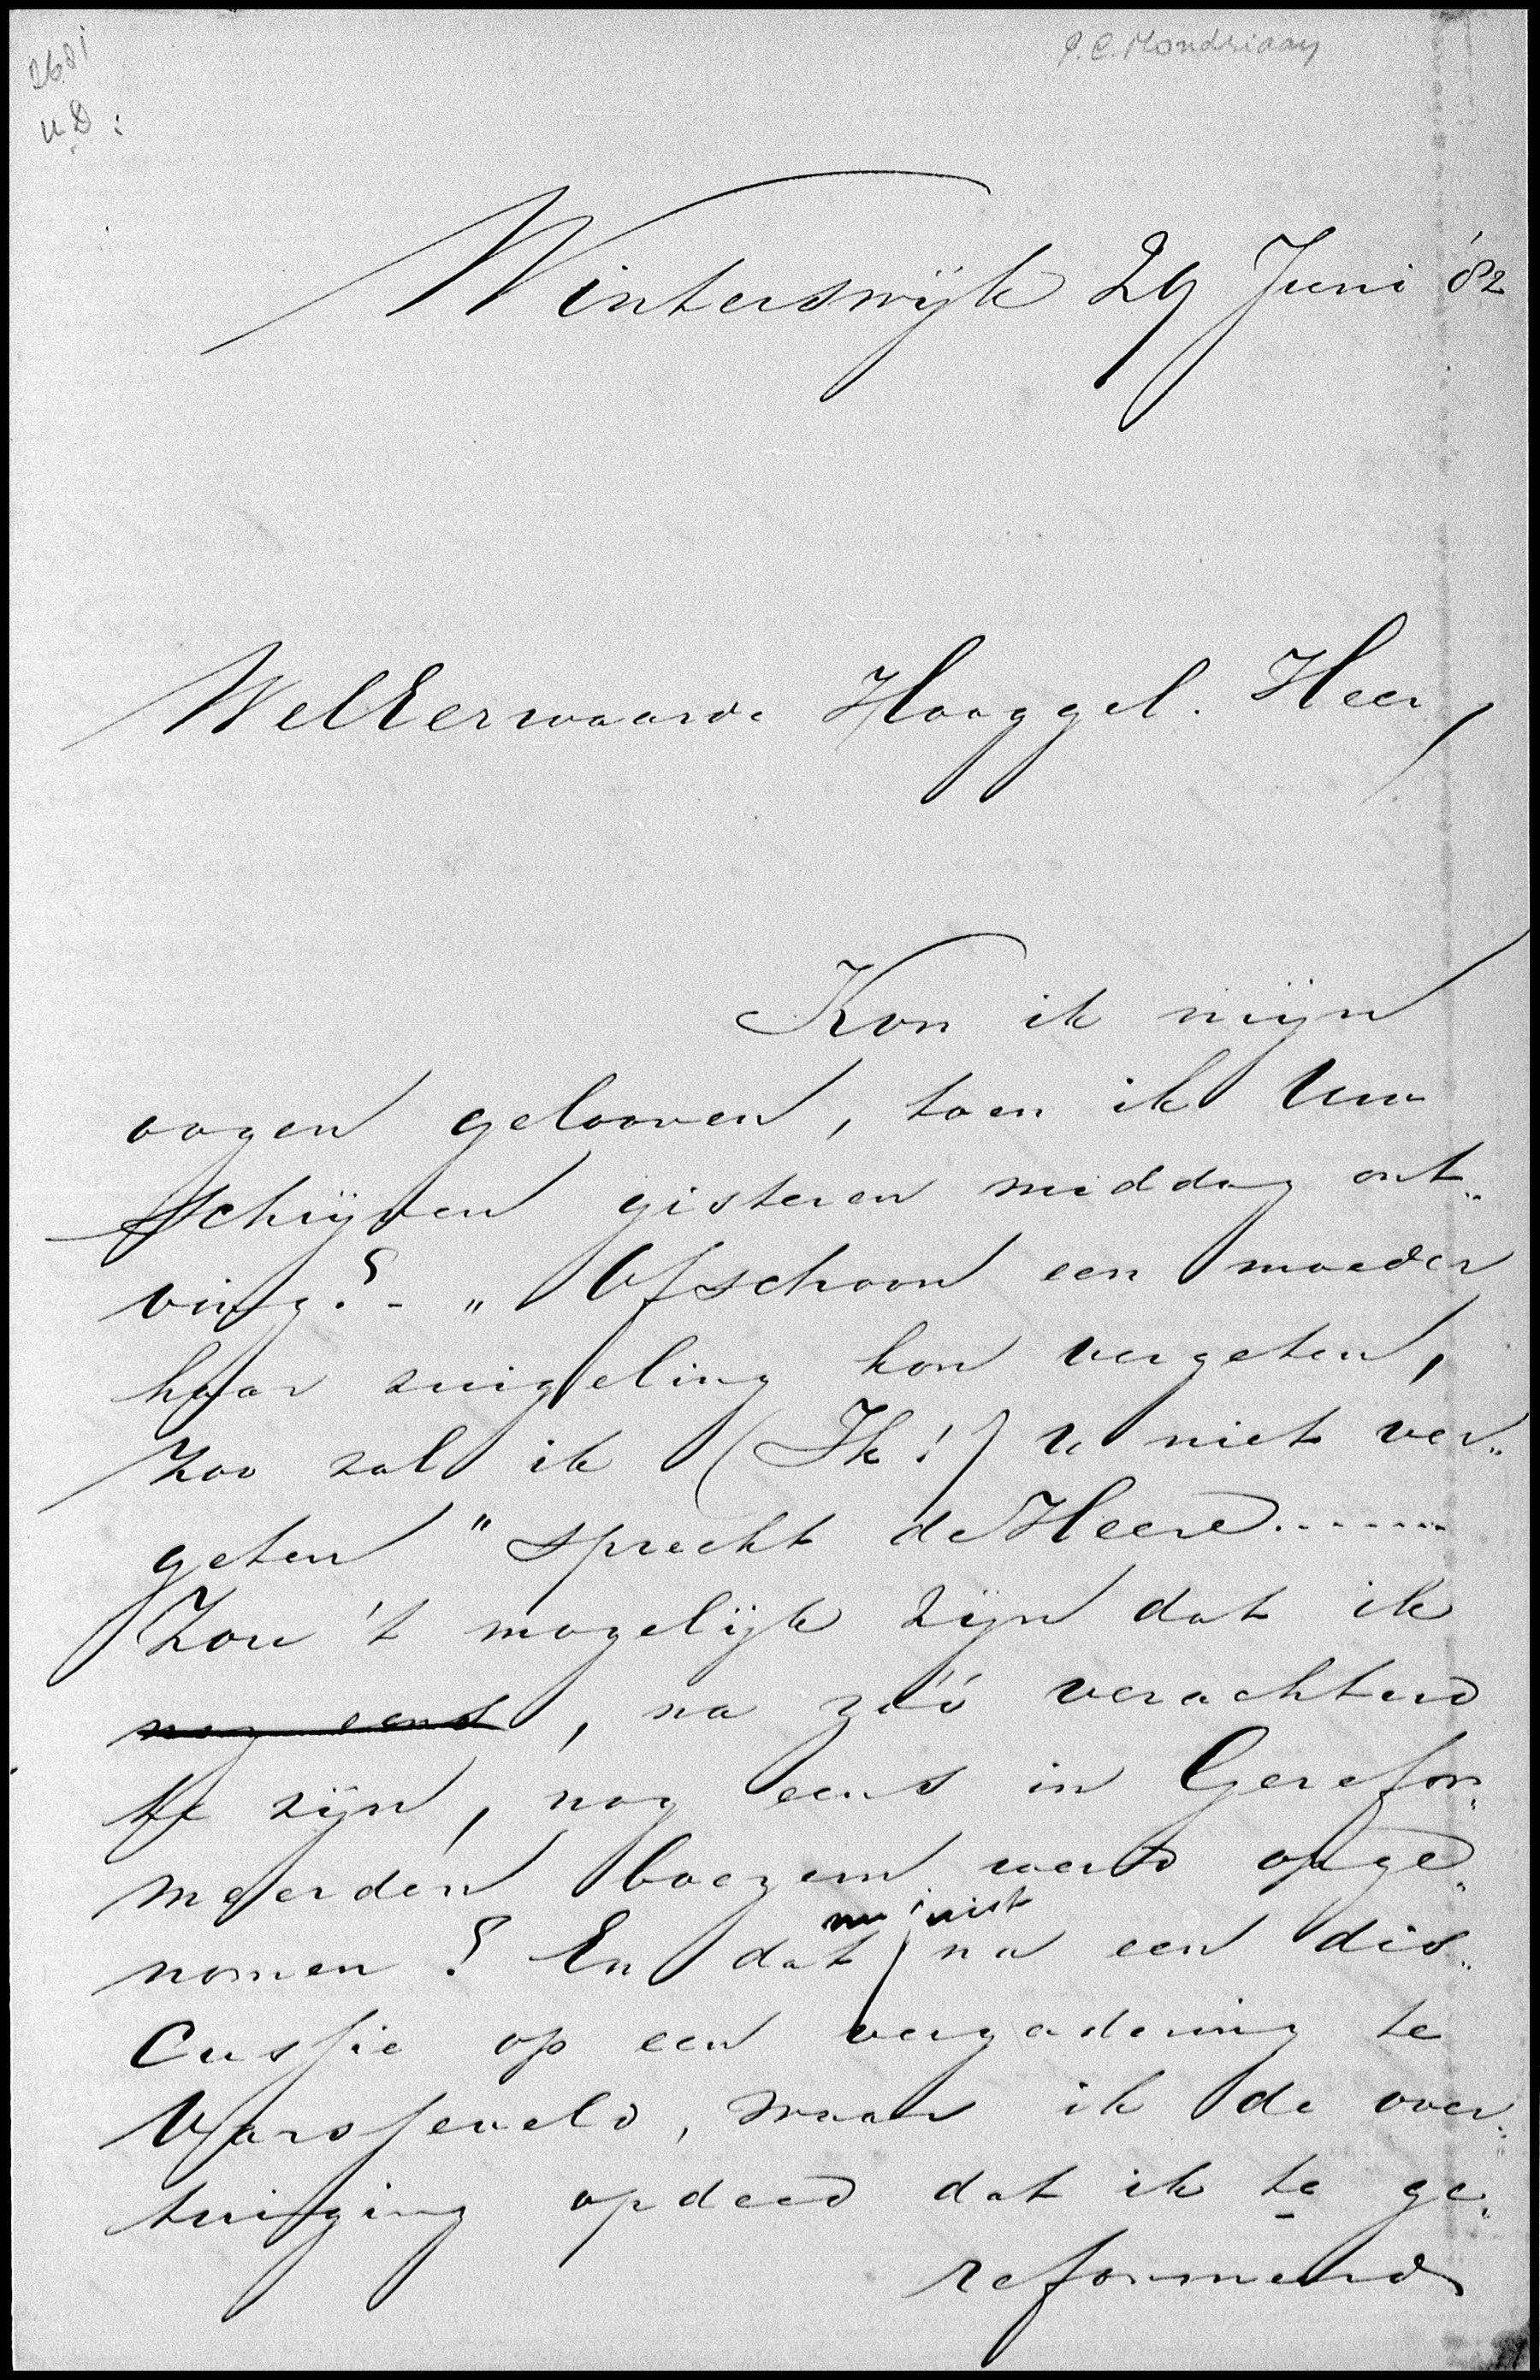 2681
P.C. Mondriaan
Winterswijk 29 Juni '82
WelEerwaarde Hooggel. Heer,
Kon ik mijn
oogen gelooven, toen ik Uw
schrijven gisteren middag ont„
ving? - „Ofschoon een moeder
haar zuigeling kon vergeten,
zoo zal ik (Ik!) U niet ver„
geten" spreekt de Heere.......
Zou 't mogelijk zijn dat ik
nog eens, na zóó verachterd
te zijn, nog eens in Gerefor„
meerden boezem werd opge„
nomen? En dat nu juist na een dis„
cussie op een vergadering te
Varsseveld, waar ik de over„
tuiging opdeed dat ik te ge„
reformeerd